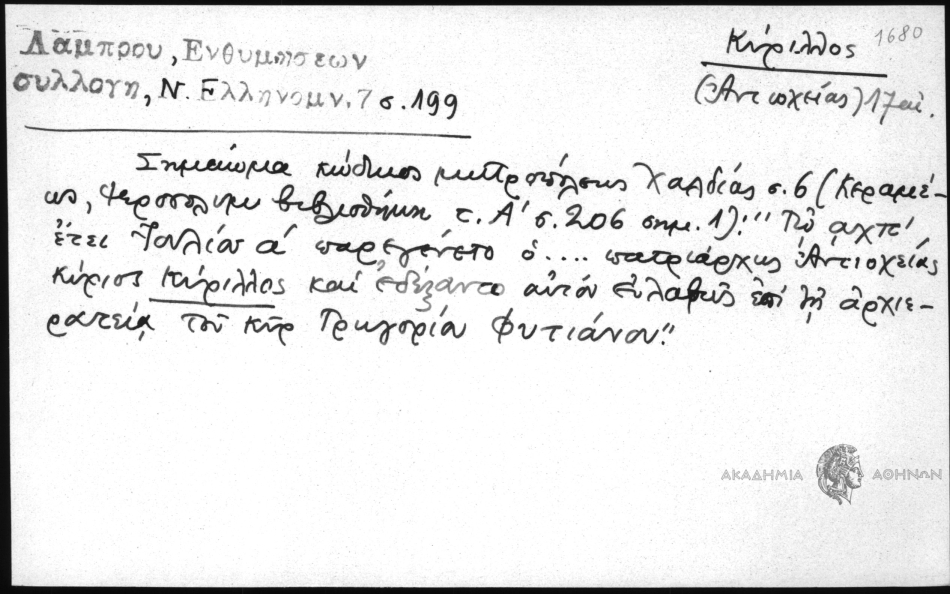 Λάμπρου, Ενθυμήσεων
συλλογή, Ν. Ελληνομν. 7 σ. 199
Κύριλλος 1680
(Ἀντιοχείας) 17 αἰ.
Σημείωμα κώδικος μητροπόλεως Χαλδίας σ. 6 (Κεραμέ-
ως, Ἱεροσολυμ. βιβλιοθήκη τ. Α' σ. 206 σημ. 1): "Τῷ αχπ'
ἔτει Ἰουλίου α' παρεγένετο ὁ .... πατριάρχης Ἀντιοχείας
κύριος Κύριλλος καὶ ἐδέξαντο αὐτὸν εὐλαβῶς ἐπὶ τῇ ἀρχιε-
ρατείᾳ τοῦ κὺρ Γρηγορίου Φυτιάνου."
ΑΚΑΔΗΜΙΑ ΑΘΗΝΩΝ